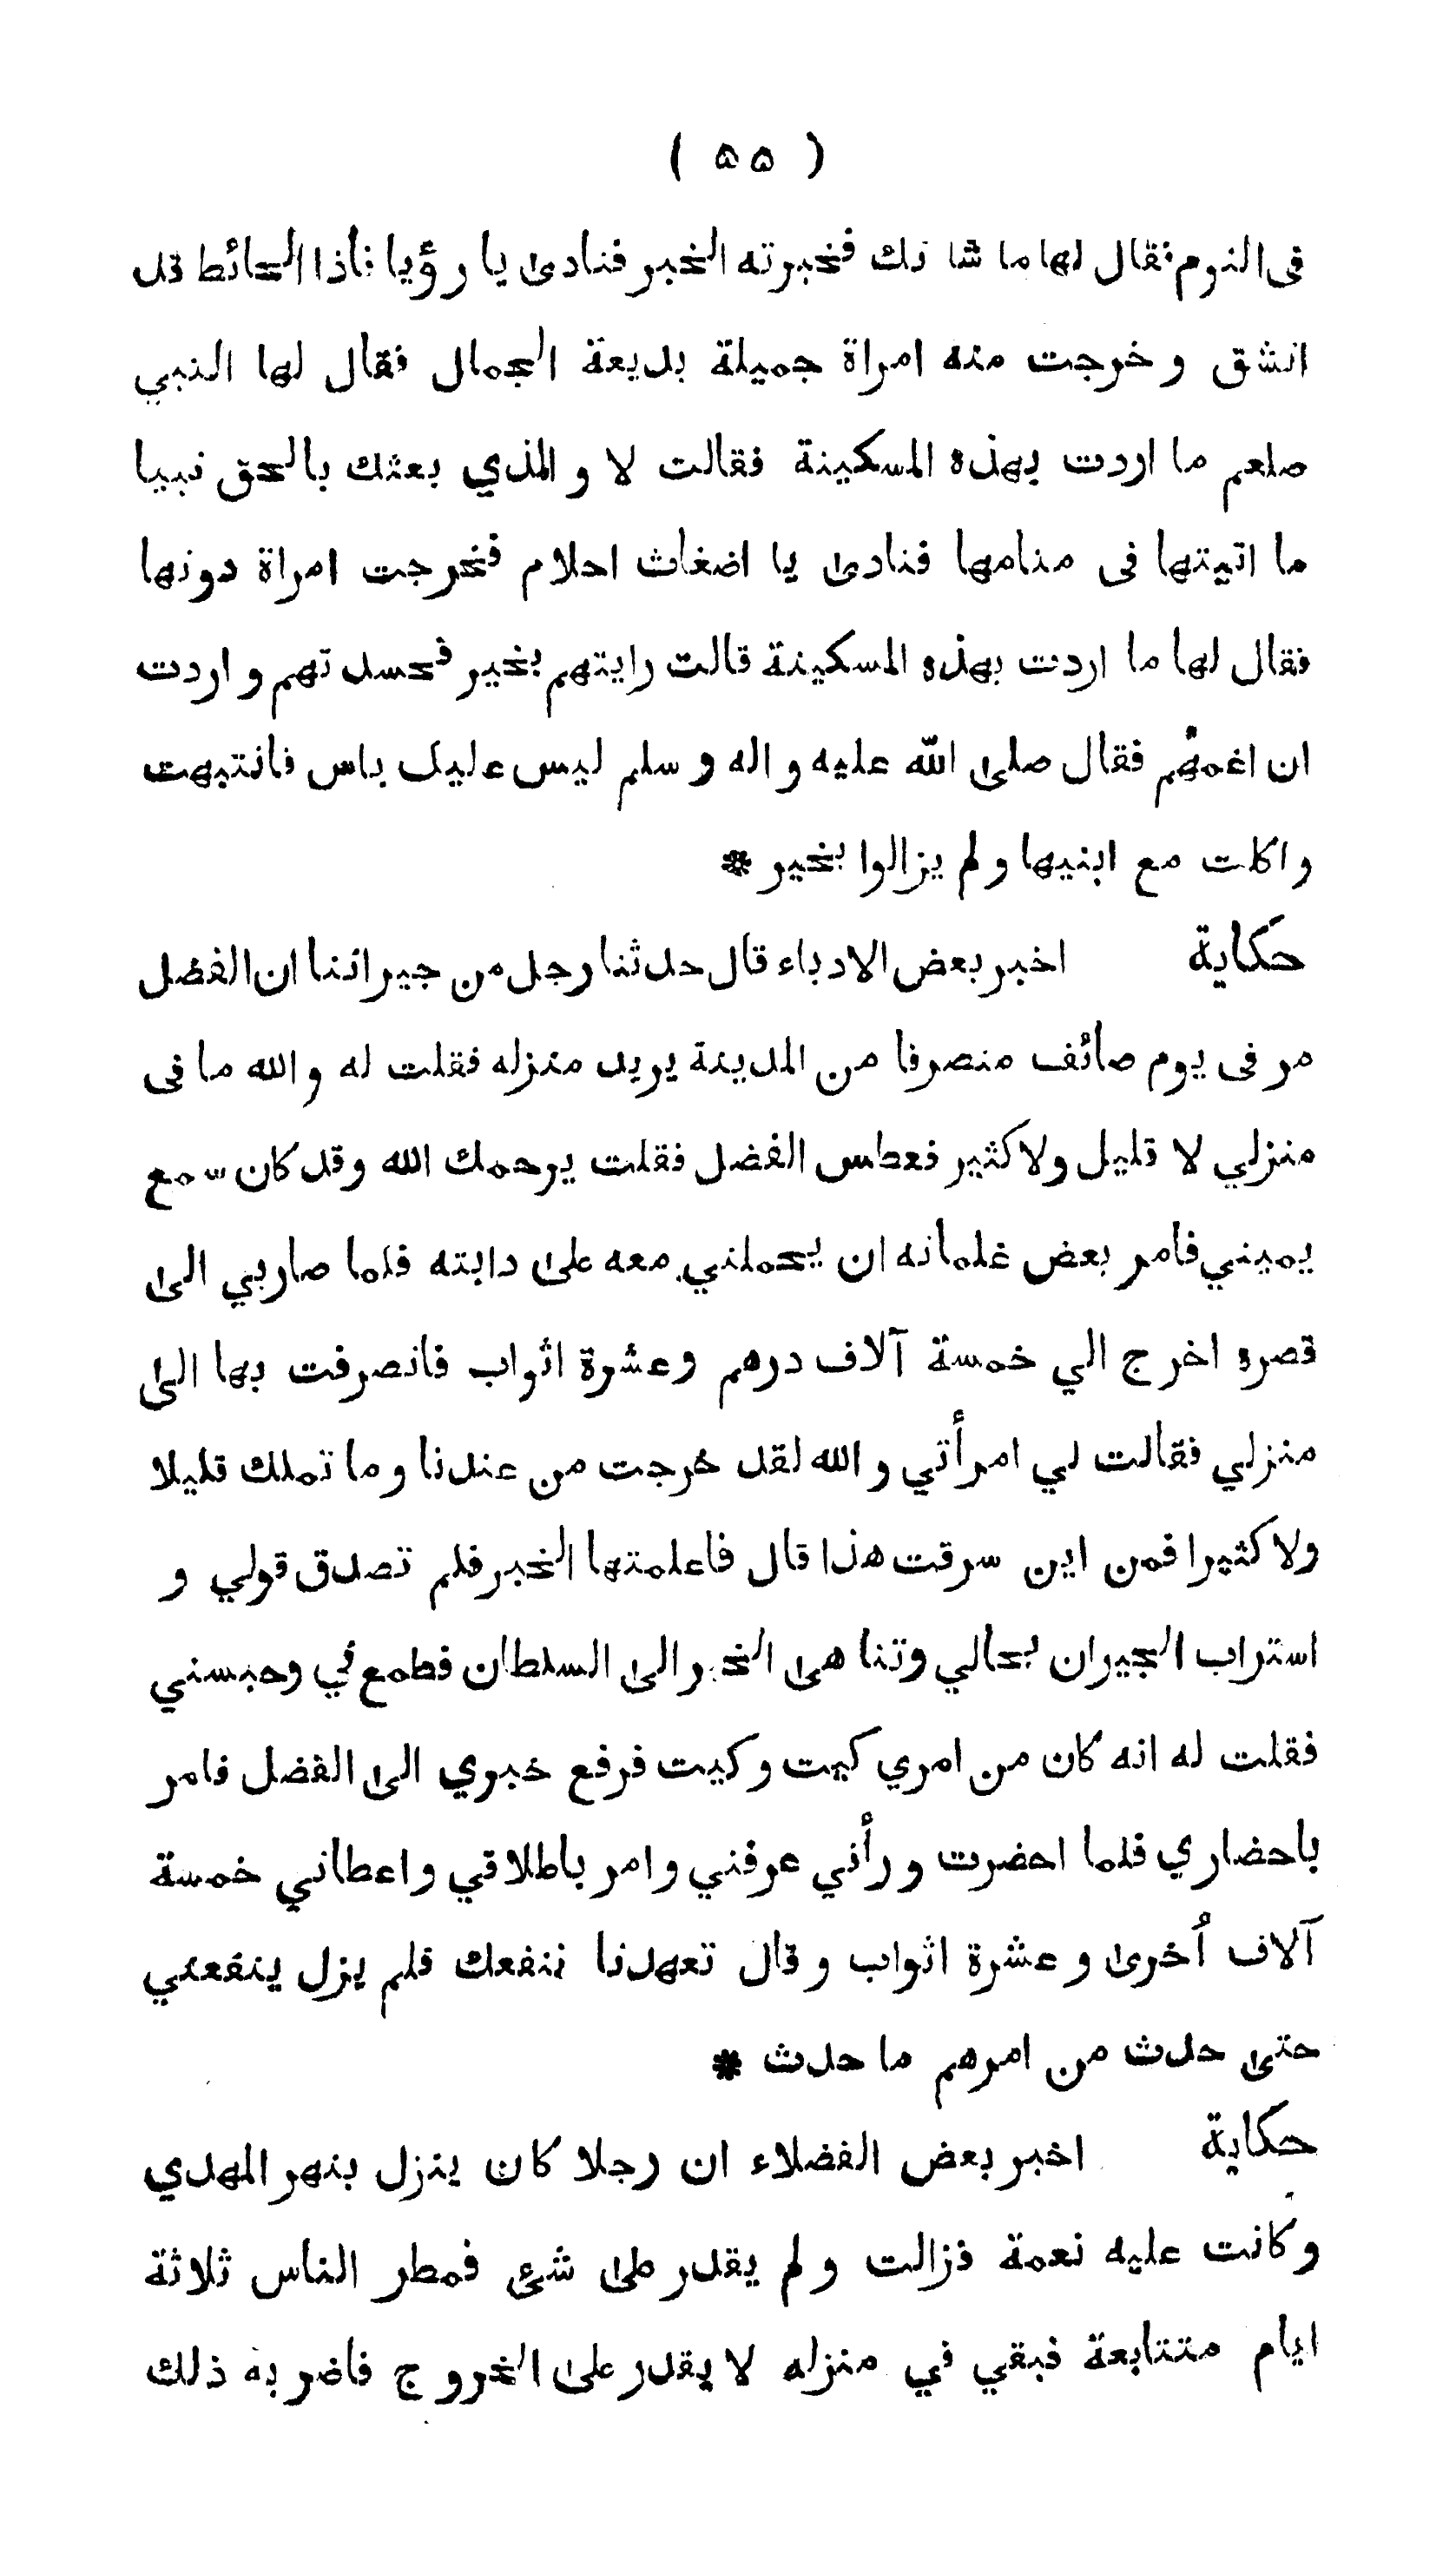 ( ٥٥ )
فى النوم فقال لها ما شانك فخبرته الخبر فنادى يا رؤيا فأذا الحائط قد
انشق و خرجت منه امراة جميلة بديعة الجمال فقال لها النبي
صلعم ما اردت بهذه المسكينة فقالت لا و الذي بعثك بالحق نبيا
ما اتيتها فى منامها فنادى يا اضغاث احلام فخرجت امراة دونها
فقال لها ما اردت بهذه المسكينة قالت رايتهم بخير فحسدتهم و اردت
ان اغمهم فقال صلى الله عليه و اله و سلم ليس عليك باس فانتبهت
و اكلت مع ابنيها و لم يزالوا بخير *
حكاية اخبر بعض الادباء قال حدثنا رجل من جيراننا ان الفضل
مر فى يوم صائف منصرفا من المدينة يريد منزله فقلت له و الله ما فى
منزلي لا قليل ولا كثير فعطس الفضل فقلت يرحمك الله وقد كان سمع
يميني فامر بعض غلمانه ان يحملني معه على دابته فلما صاربي الى
قصره اخرج الي خمسة آلاف درهم وعشرة اثواب فانصرفت بها الى
منزلي فقالت لي امرأتي و الله لقد خرجت من عندنا و ما تملك قليلا
ولا كثيرا فمن اين سرقت هذا قال فاعلمتها الخبر فلم تصدق قولي و
استراب الجيران بحالي وتناهى الخبر الى السلطان فطمع في وحبسني
فقلت له انه كان من امري كيت و كيت فرفع خبري الى الفضل فامر
باحضاري فلما احضرت و رأني عرفني و امر باطلاقي و اعطاني خمسة
آلاف أخرى و عشرة اثواب و قال تعهدنا ننفعك فلم يزل ينفعني
حتى حدث من امرهم ما حدث *
حكاية اخبر بعض الفضلاء ان رجلا كان ينزل بنهر المهدي
و كانت عليه نعمة فزالت و لم يقدر على شئ فمطر الناس ثلاثة
ايام متتابعة فبقي في منزله لا يقدر على الخروج فاضر به ذلك